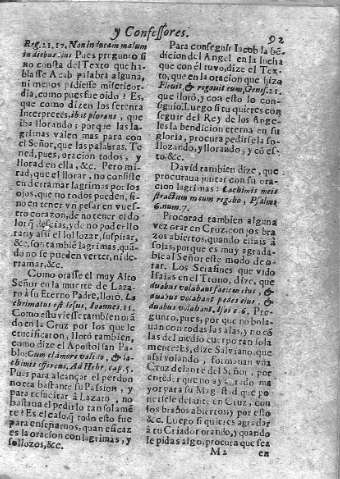 y Confessores. 92
Reg. 21. 27. Non inducam malum
in diebus eius Pues pregunto si
no consta del Texto que ha-
blasse Acab palabra alguna,
ni menos pidiesse misericor-
dia, como pues fue oido? Es,
que como dizen los setenta
Interpretes, plorans, que
iba llorando: porque las la-
grimas valen mas para con
el Señor, que las palabras. Te-
ned, pues, oracion todos, y
llorad en ella, &c. Pero mi-
rad, que el llorar, no consiste
en derramar lagrimas por los
ojos, que no todos pueden, si-
no en tener vn pesar en vues-
tro corazon, de no tener
de no poder llo
rar y assi el sollozar, suspirar,
&c. son tambiē lagrimas, quā
do no se pueden verter, ni de-
rramar, &c.
Como orasse el muy Alto
Señor en la muerte de Laza-
ro à su Eterno Padre, lloró. La
chrimatus est Iesus, Ioannes. 11.
Como estuviesse tambien
en la Cruz por los que le
crucificaron, lloró tambien,
como dize el Apostol san Pa-
blo: Cum clamore valido, & la-
chrimis offerens, Ad Hebr. cap. 5.
Pues para alcançar el perdon
no era bastante su Passion, y
para resucitar à Lazaro, no
bastaua el pedirlo tan solamē
te? Es el caso, q̄ todo esto fue
para enseñarnos, quan eficaz
es la oracion con lagrimas, y
sollozos, &c.
Para conseguir Iacob la bē-
dicion del Angel en la lucha
que con èl tuvo, dize el Tex-
to, que en la oracion que hizo
Flevit, & rogavit eum, Genes.
que lloró, y con esto lo con-
siguio. Luego si tu quieres con
seguir del Rey de los Ange-
les la bendicion eterna en su
gloria, procura pedirsela so-
llozando, y llorando, y cō es-
to, &c.
David tambien dize, que
procuraua juntar con su ora-
cion lagrimas: Lachrimis meis
stratum meum rigabo, Psalm.
6. num. 7.
Procurad tambien alguna
vez orar en Cruz, con los bra
zos abiertos, quando estais à
solas, porque es muy agrada-
ble al Señor este modo de o-
rar. Los Serafines que vido
Isaias en el Trono, dize, que
duabus volabant faciem eius, &
duabus volabant pedes eius, &
duabus volabant, Isai. 6. Pre-
gunto, pues, por que no bola-
uan con todas las alas, y no cō
las del medio cuerpo tan sola
mente? es, dize Salviano, que
assi volando, formauan vna
Cruz delante del Señor, por
que no ay cosa de ma
yor para su Magestad que po
nersele delante en Cruz, con
los braços abiertos, y por esto
&c. Luego si quieres agradar
à tu Criador orando, y quando
le pidas algo, procura que sea
M 2 en